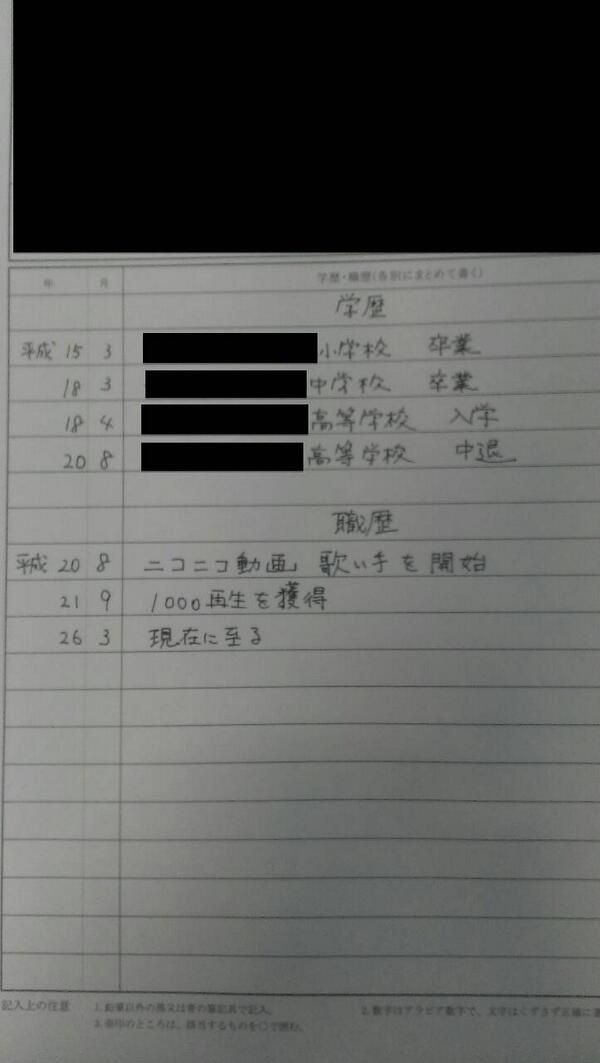 年 月 学歴・職歴(各別にまとめて書く)
学歴
平成 15 3 小学校 卒業
18 3 中学校 卒業
18 4 高等学校 入学
20 8 高等学校 中退
職歴
平成 20 8 ニコニコ動画 歌い手を開始
21 9 1000再生を獲得
26 3 現在に至る
記入上の注意 1.鉛筆以外の黒又は青の筆記具で記入。 2.数字はアラビア数字で、文字はくずさず正確に書
3.※印のところは、該当するものを○で囲む。